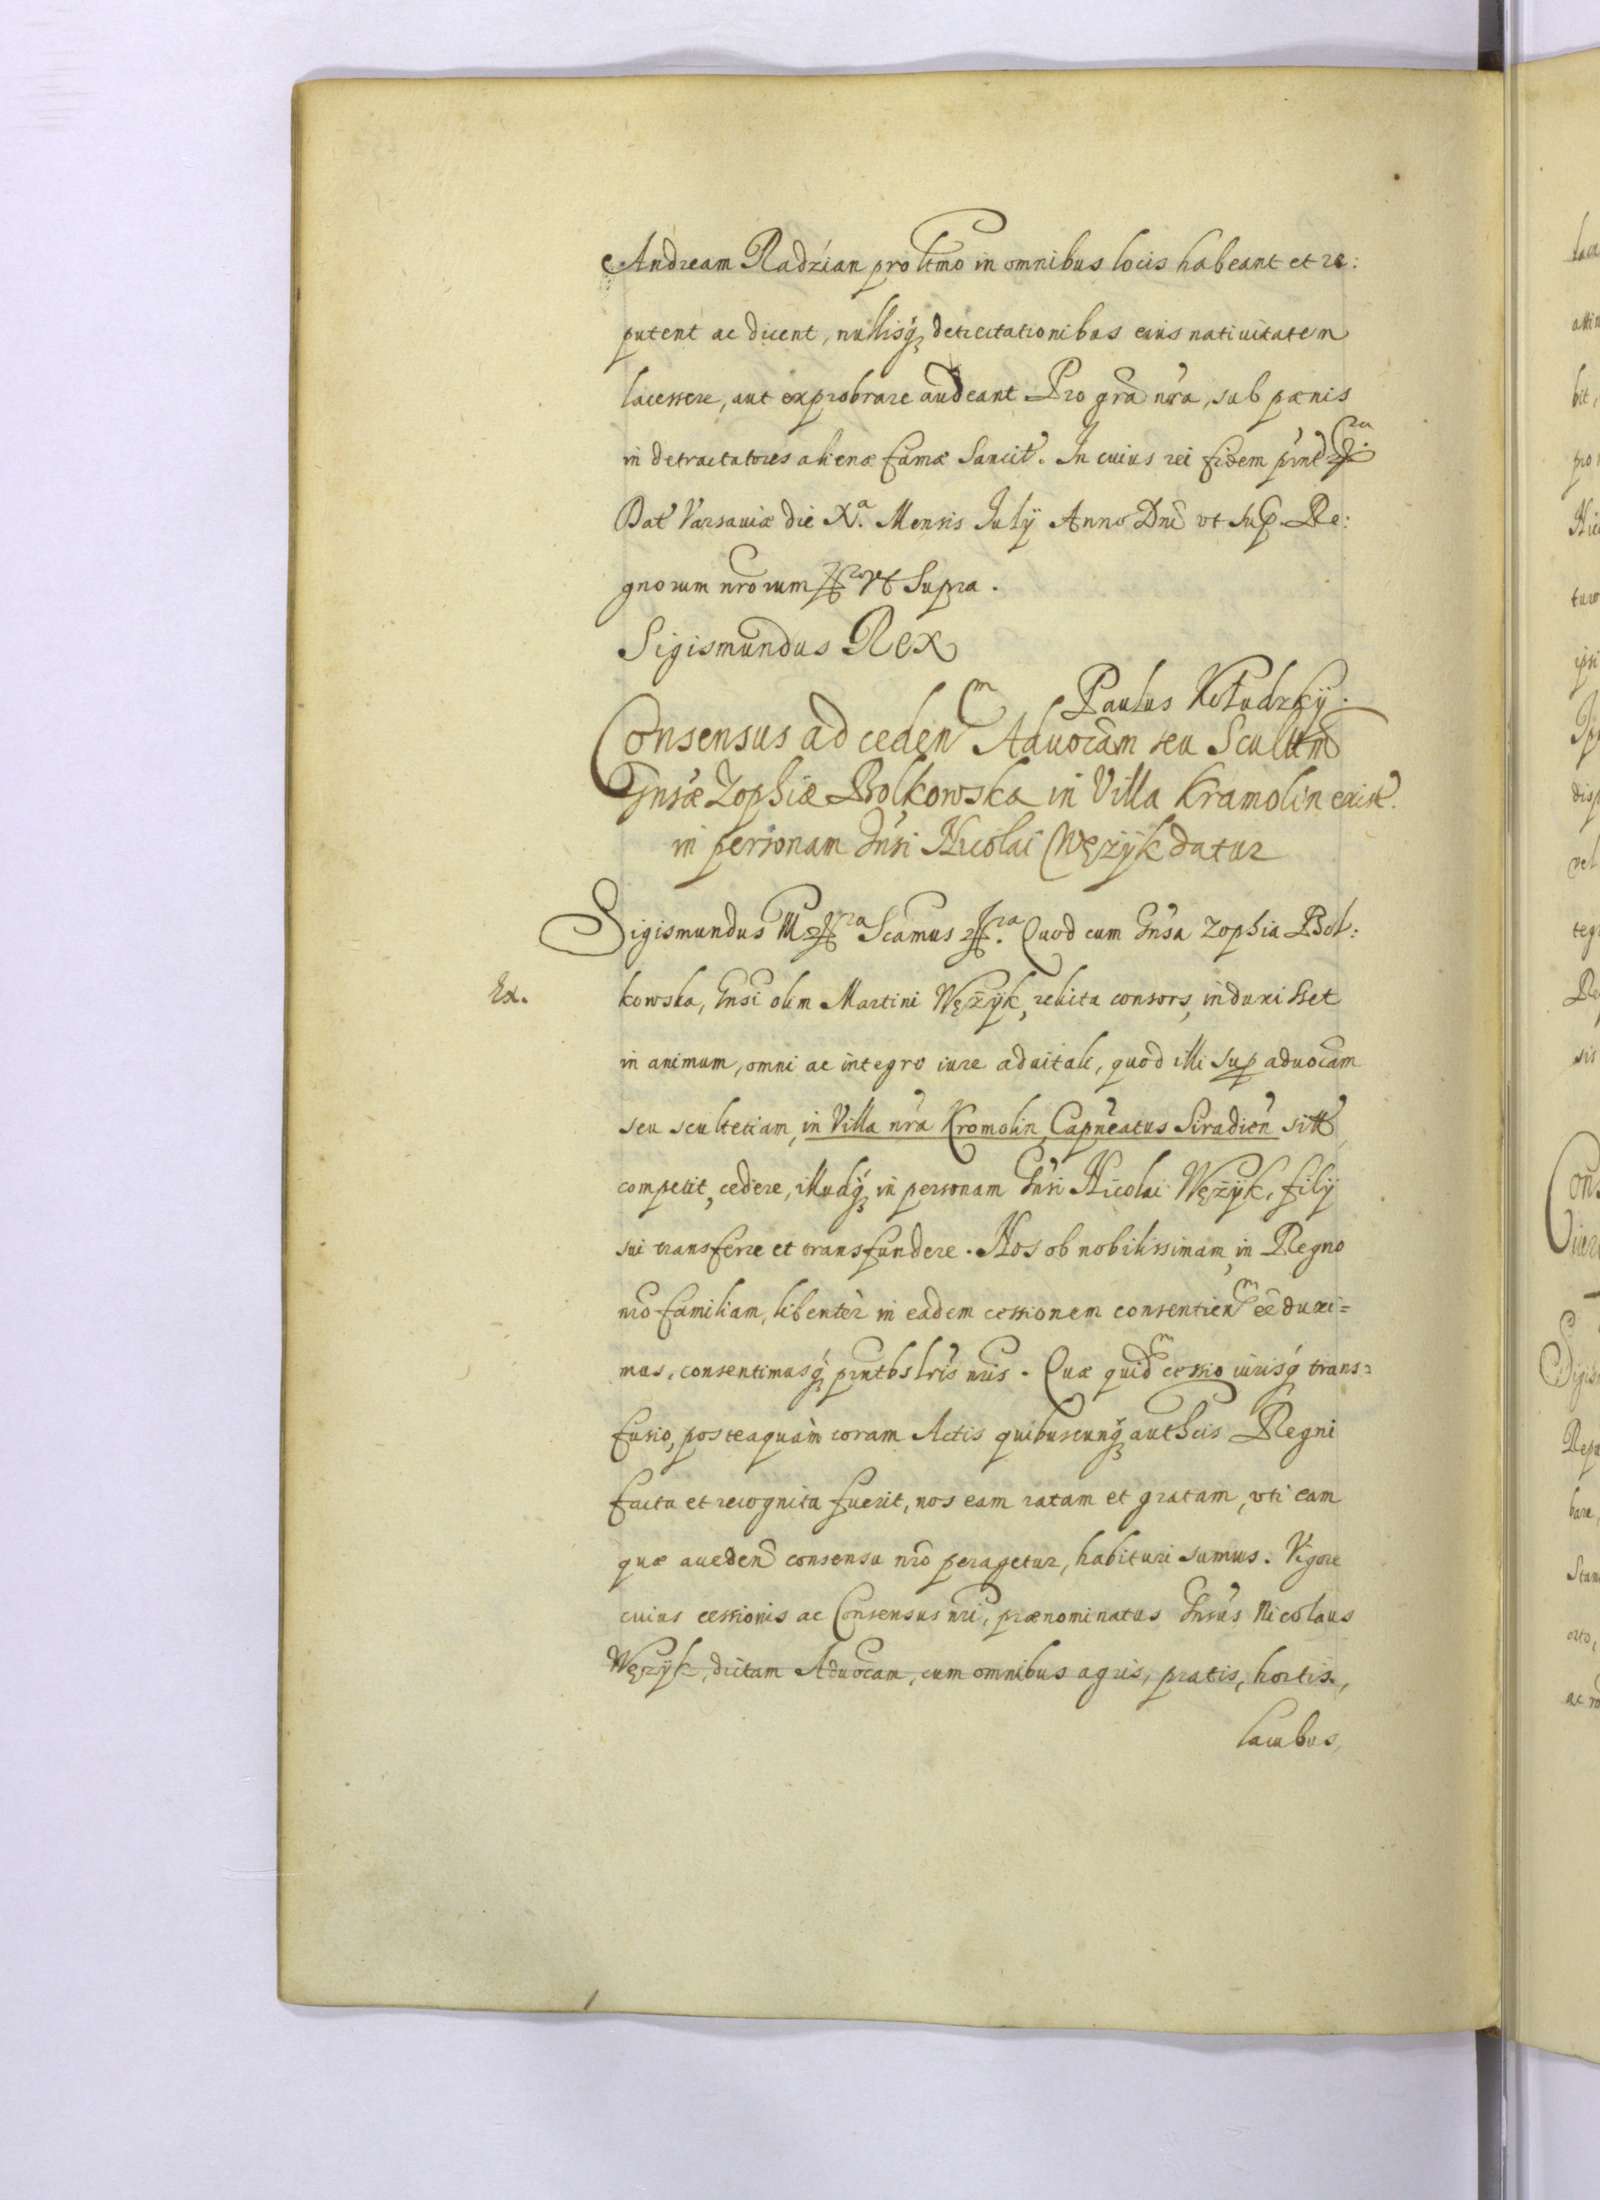 Andream Radzian pro ltmo in omnibus locis habeant et re:
putent ac dicent, nullisq; detrectationibus eius natiuitatem
lacessere, aut exprobrare audeant Pro gra nra, sub pœnis
in detractatores alienæ famæ Sancit. In cuius rei fidem pñt
Dat Varsauiæ die X.a Mensis July Anno Dni vt Sup. Re:
gnorum nrorum vt Supra.
Sigismundus Rex
Paulus Kołudzky.
Consensus ad ceden Aduocam seu Scultm
Gnsæ Zophiæ Bolkowska in Villa Kramolin exist.
in personam Gnsi Nicolai Węzyk datur
Sigismundus III Scamus Quod cum Gnsa Zophia Bol:
Ex.
kowska, Gnsi olim Martini Wężyk, relicta consors, induxisset
in animum, omni ac integro iure aduitali, quod illi sup aduocam
seu scultetiam, in Villa nra Kromolin Capneatus Siradien sitt
competit, cedere, illudq; in personam Gnsi Nicolai Wężyk, fily
sui transferre et transfundere. Nos ob nobilissimam, in Regno
nro familiam, libenter in eadem cessionem consentien ee duxi=
mus, consentimusq; pntbs lris nris. Quæ quid cessio iurisq; trans=
fusio, posteaquàm coram Actis quibuscunq; authcis Regni
facta et recognita fuerit, nos eam ratam et gratam, vti eam
quæ consensu nro peragetur, habituri sumus. Vigore
cuius cessionis ac Consensus nri, prænominatus Gnsus Nicolaus
Węzyk, dictam Aduocam, cum omnibus agris, pratis, hortis,
lacubus,